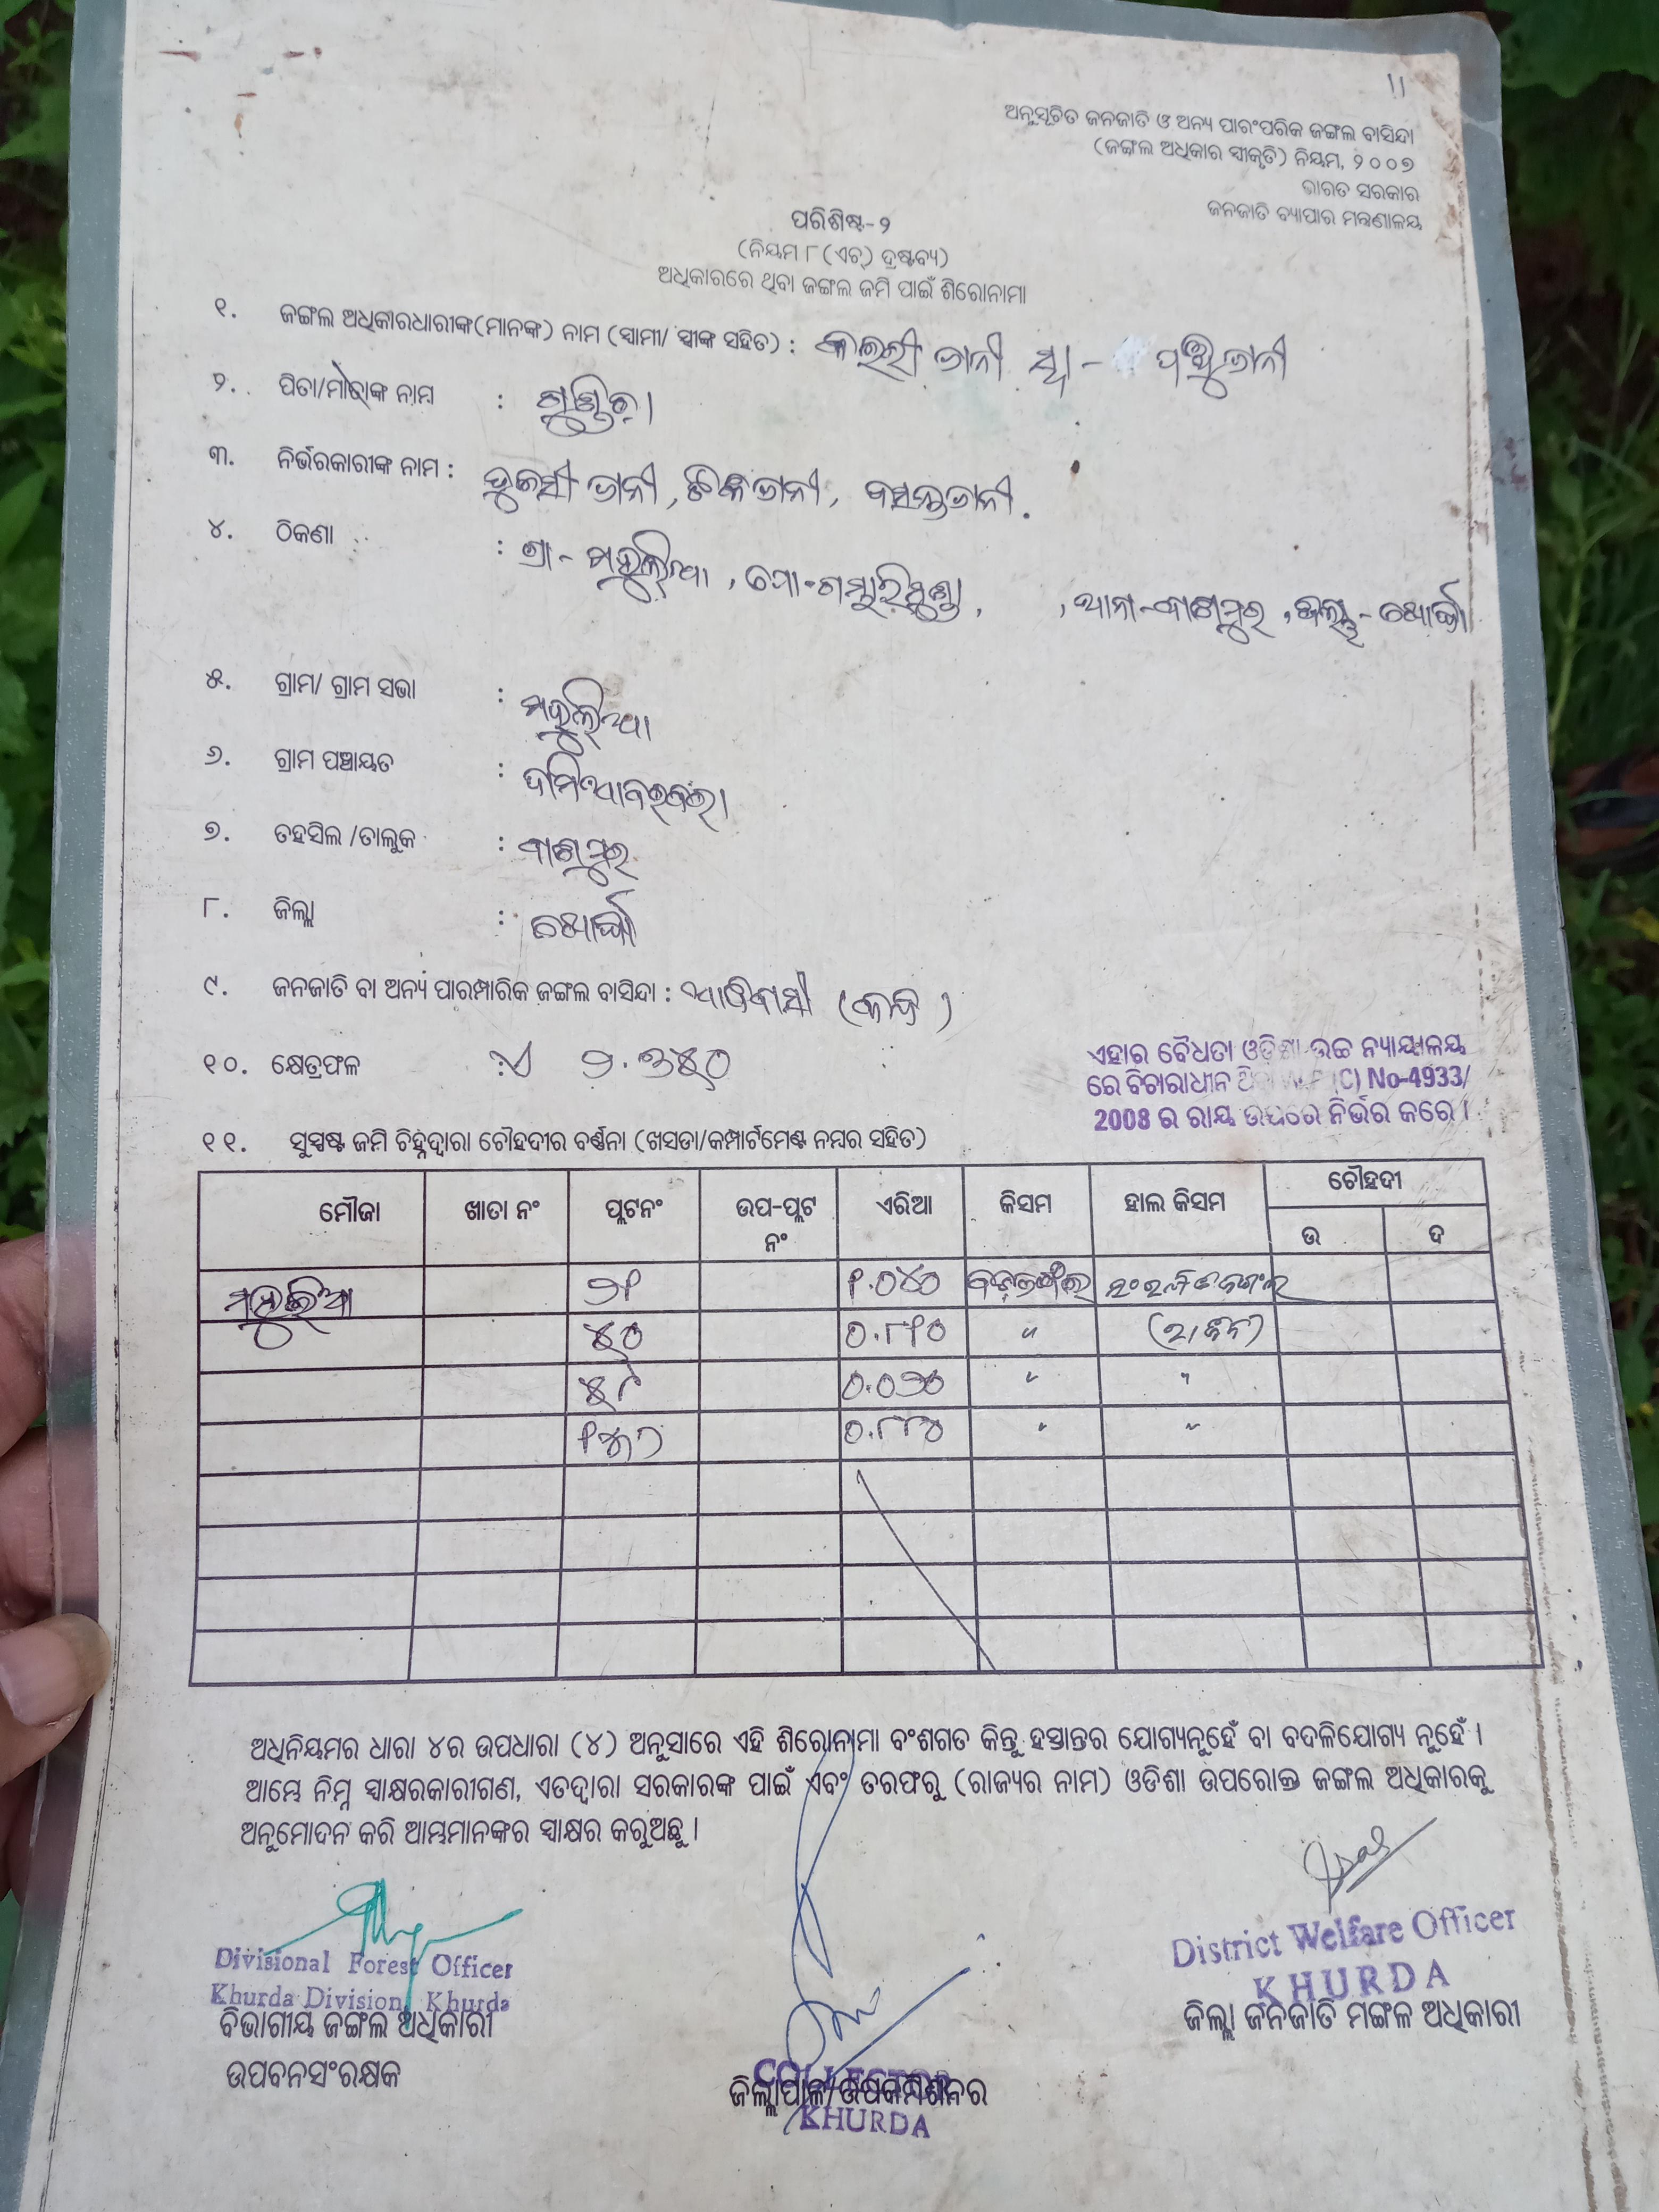 ୧୧
ଅନୁସୂଚିତ ଜନଜାତି ଓ ଅନ୍ୟ ପାରଂପରିକ ଜଙ୍ଗଲ ବାସିନ୍ଦା
(ଜଙ୍ଗଲ ଅଧିକାର ସ୍ୱୀକୃତି) ନିୟମ, ୨୦୦୭
ଭାରତ ସରକାର
ଜନଜାତି ବ୍ୟାପାର ମନ୍ତ୍ରଣାଳୟ
ପରିଶିଷ୍ଟ-୨
(ନିୟମ ୮(ଏଚ୍) ଦ୍ରଷ୍ଟବ୍ୟ)
ଅଧିକାରରେ ଥିବା ଜଙ୍ଗଲ ଜମି ପାଇଁ ଶିରୋନାମା
୧. ଜଙ୍ଗଲ ଅଧିକାରଧାରୀଙ୍କ(ମାନଙ୍କ) ନାମ (ସ୍ୱାମୀ/ ସ୍ତ୍ରୀଙ୍କ ସହିତ) : ଜାନୀ ସ୍ୱା - ଜାନୀ
୨. ପିତା/ମାତାଙ୍କ ନାମ :
୩. ନିର୍ଭରକାରୀଙ୍କ ନାମ : ଜାନୀ, ଜାନୀ, ବସନ୍ତ ଜାନୀ.
୪. ଠିକଣା : ଗ୍ରା - ମହୁଲିଆ, ପୋ- ଗମ୍ଭାରିମୁଣ୍ଡା, ଥାନା - ବାଣପୁର, ଜିଲ୍ଲା - ଖୋର୍ଦ୍ଧା
୫. ଗ୍ରାମ/ ଗ୍ରାମ ସଭା : ମହୁଲିଆ
୬. ଗ୍ରାମ ପଞ୍ଚାୟତ : ଦାମିଆବରବରା
୭. ତହସିଲ /ତାଲୁକ : ବାଣପୁର
୮. ଜିଲ୍ଲା : ଖୋର୍ଦ୍ଧା
୯. ଜନଜାତି ବା ଅନ୍ୟ ପାରମ୍ପାରିକ ଜଙ୍ଗଲ ବାସିନ୍ଦା : ଆଦିବାସୀ (କନ୍ଧ)
୧୦. କ୍ଷେତ୍ରଫଳ : ଏ ୨.୭୫୦
ଏହାର ବୈଧତା ଓଡ଼ିଶା ଉଚ୍ଚ ନ୍ୟାୟାଳୟ
ରେ ବିଚାରାଧୀନ ଥିବା W.P.(C) No-4933/
2008 ର ରାୟ ଉପରେ ନିର୍ଭର କରେ ।
୧୧. ସୁସ୍ପଷ୍ଟ ଜମି ଚିହ୍ନଦ୍ୱାରା ଚୌହଦୀର ବର୍ଣ୍ଣନା (ଖସଡା/କମ୍ପାର୍ଟମେଣ୍ଟ ନମ୍ବର ସହିତ)
ମୌଜା ଖାତା ନଂ ପ୍ଲଟନଂ ଉପ-ପ୍ଲଟ ନଂ ଏରିଆ କିସମ ହାଲ କିସମ ଚୌହଦୀ
ଉ ଦ
ମହୁଲିଆ ୧.୦୪୦
୫୦ ୦.୮୧୦ "
୫୮ ୦.୦୨୦ " "
୦.୮୮୦ " "
ଅଧିନିୟମର ଧାରା ୪ର ଉପଧାରା (୪) ଅନୁସାରେ ଏହି ଶିରୋନାମା ବଂଶଗତ କିନ୍ତୁ ହସ୍ତାନ୍ତର ଯୋଗ୍ୟନୁହେଁ ବା ବଦଳିଯୋଗ୍ୟ ନୁହେଁ ।
ଆମ୍ଭେ ନିମ୍ନ ସ୍ୱାକ୍ଷରକାରୀଗଣ, ଏତଦ୍ୱାରା ସରକାରଙ୍କ ପାଇଁ ଏବଂ ତରଫରୁ (ରାଜ୍ୟର ନାମ) ଓଡିଶା ଉପରୋକ୍ତ ଜଙ୍ଗଲ ଅଧିକାରକୁ
ଅନୁମୋଦନ କରି ଆମ୍ଭମାନଙ୍କର ସ୍ୱାକ୍ଷର କରୁଅଛୁ ।
Divisional Forest Officer
Khurda Division, Khurda
ବିଭାଗୀୟ ଜଙ୍ଗଲ ଅଧିକାରୀ
ଉପବନସଂରକ୍ଷକ
COLLECTOR
ଜିଲ୍ଲାପାଳ/ଉପକମିଶନର
KHURDA
District Welfare Officer
KHURDA
ଜିଲ୍ଲା ଜନଜାତି ମଙ୍ଗଳ ଅଧିକାରୀ